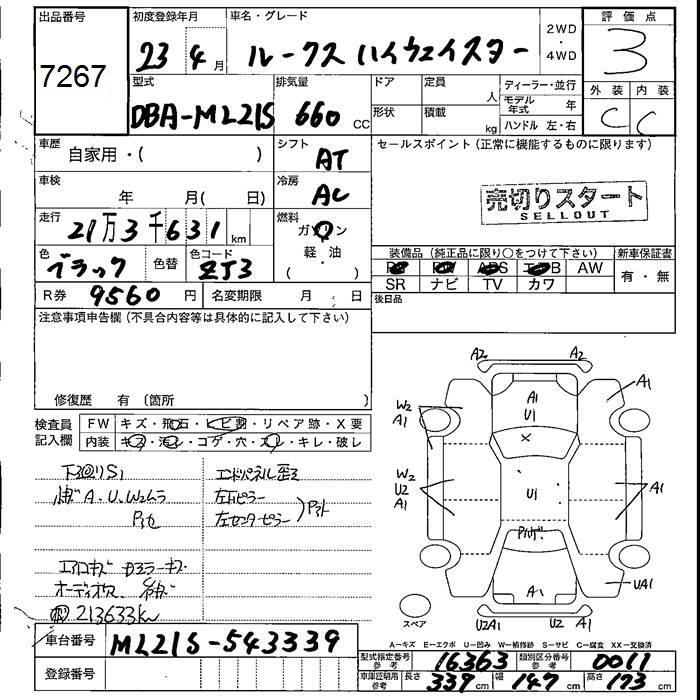 出品番号
7267
初度登録年月
23 4 月
車名・グレード
ルークス ハイウェイスター
2WD
・
4WD
評価点
3
型式
DBA-ML21S
排気量
660 cc
ドア
定員
人
形状
積載
kg
ディーラー・並行
モデル年式 年
ハンドル 左・右
外装 内装
C C
車歴
自家用・( )
シフト
AT
セールスポイント(正常に機能するものに限ります)
車検
年 月( 日)
冷房
AC
売切りスタート
SELLOUT
走行
21万3千631 km
燃料
ガソリン
軽・油
・( )
色
ブラック
色替
色コード
ZJ3
装備品(純正品に限り○をつけて下さい)
新車保証書
AW
有・無
SR ナビ TV カワ
R券 9560 円
名変期限 月 日
後日品
注意事項申告欄(不具合内容等は具体的に記入して下さい)
修復歴 有(箇所 )
検査員記入欄
FW キズ・飛石・ヒビ割・リペア跡・X要
内装 キズ・汚レ・コゲ・穴・スレ・キレ・破レ
エンドパネル歪ミ
A.U.W2ムラ
左センターピラー
213633km
A2 A2
A1 A1
W2 A1 U1
X
W2 U2 A1 U1 A1
A1 UA1
スペア
U2A1 U2 A1
A=キズ E=エクボ U=凹み W=補修跡 S=サビ C=腐食 XX=交換済
車台番号 ML21S-543339
登録番号
型式指定番号 参考 16363
類別区分番号 参考 0011
車庫証明用 参考 長さ 339 cm 幅 147 cm 高さ 173 cm